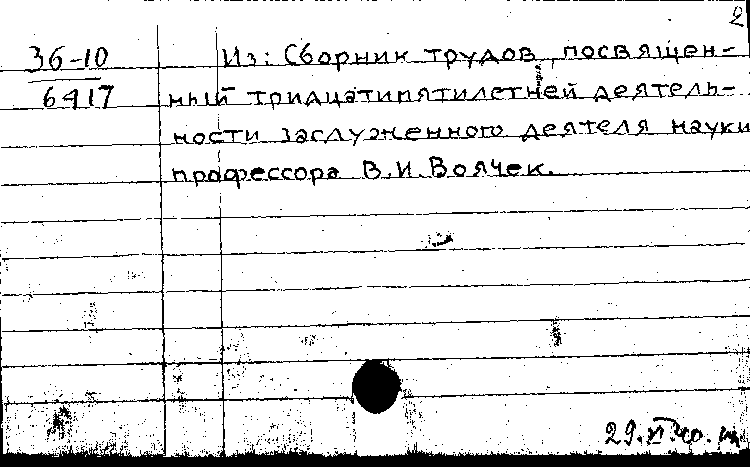 2
36-10 Из: Сборник трудов, посвящен-
6417 ный тридцатипятилетней деятель-
ности заслуженного деятеля науки
профессора В.И.Воячек.